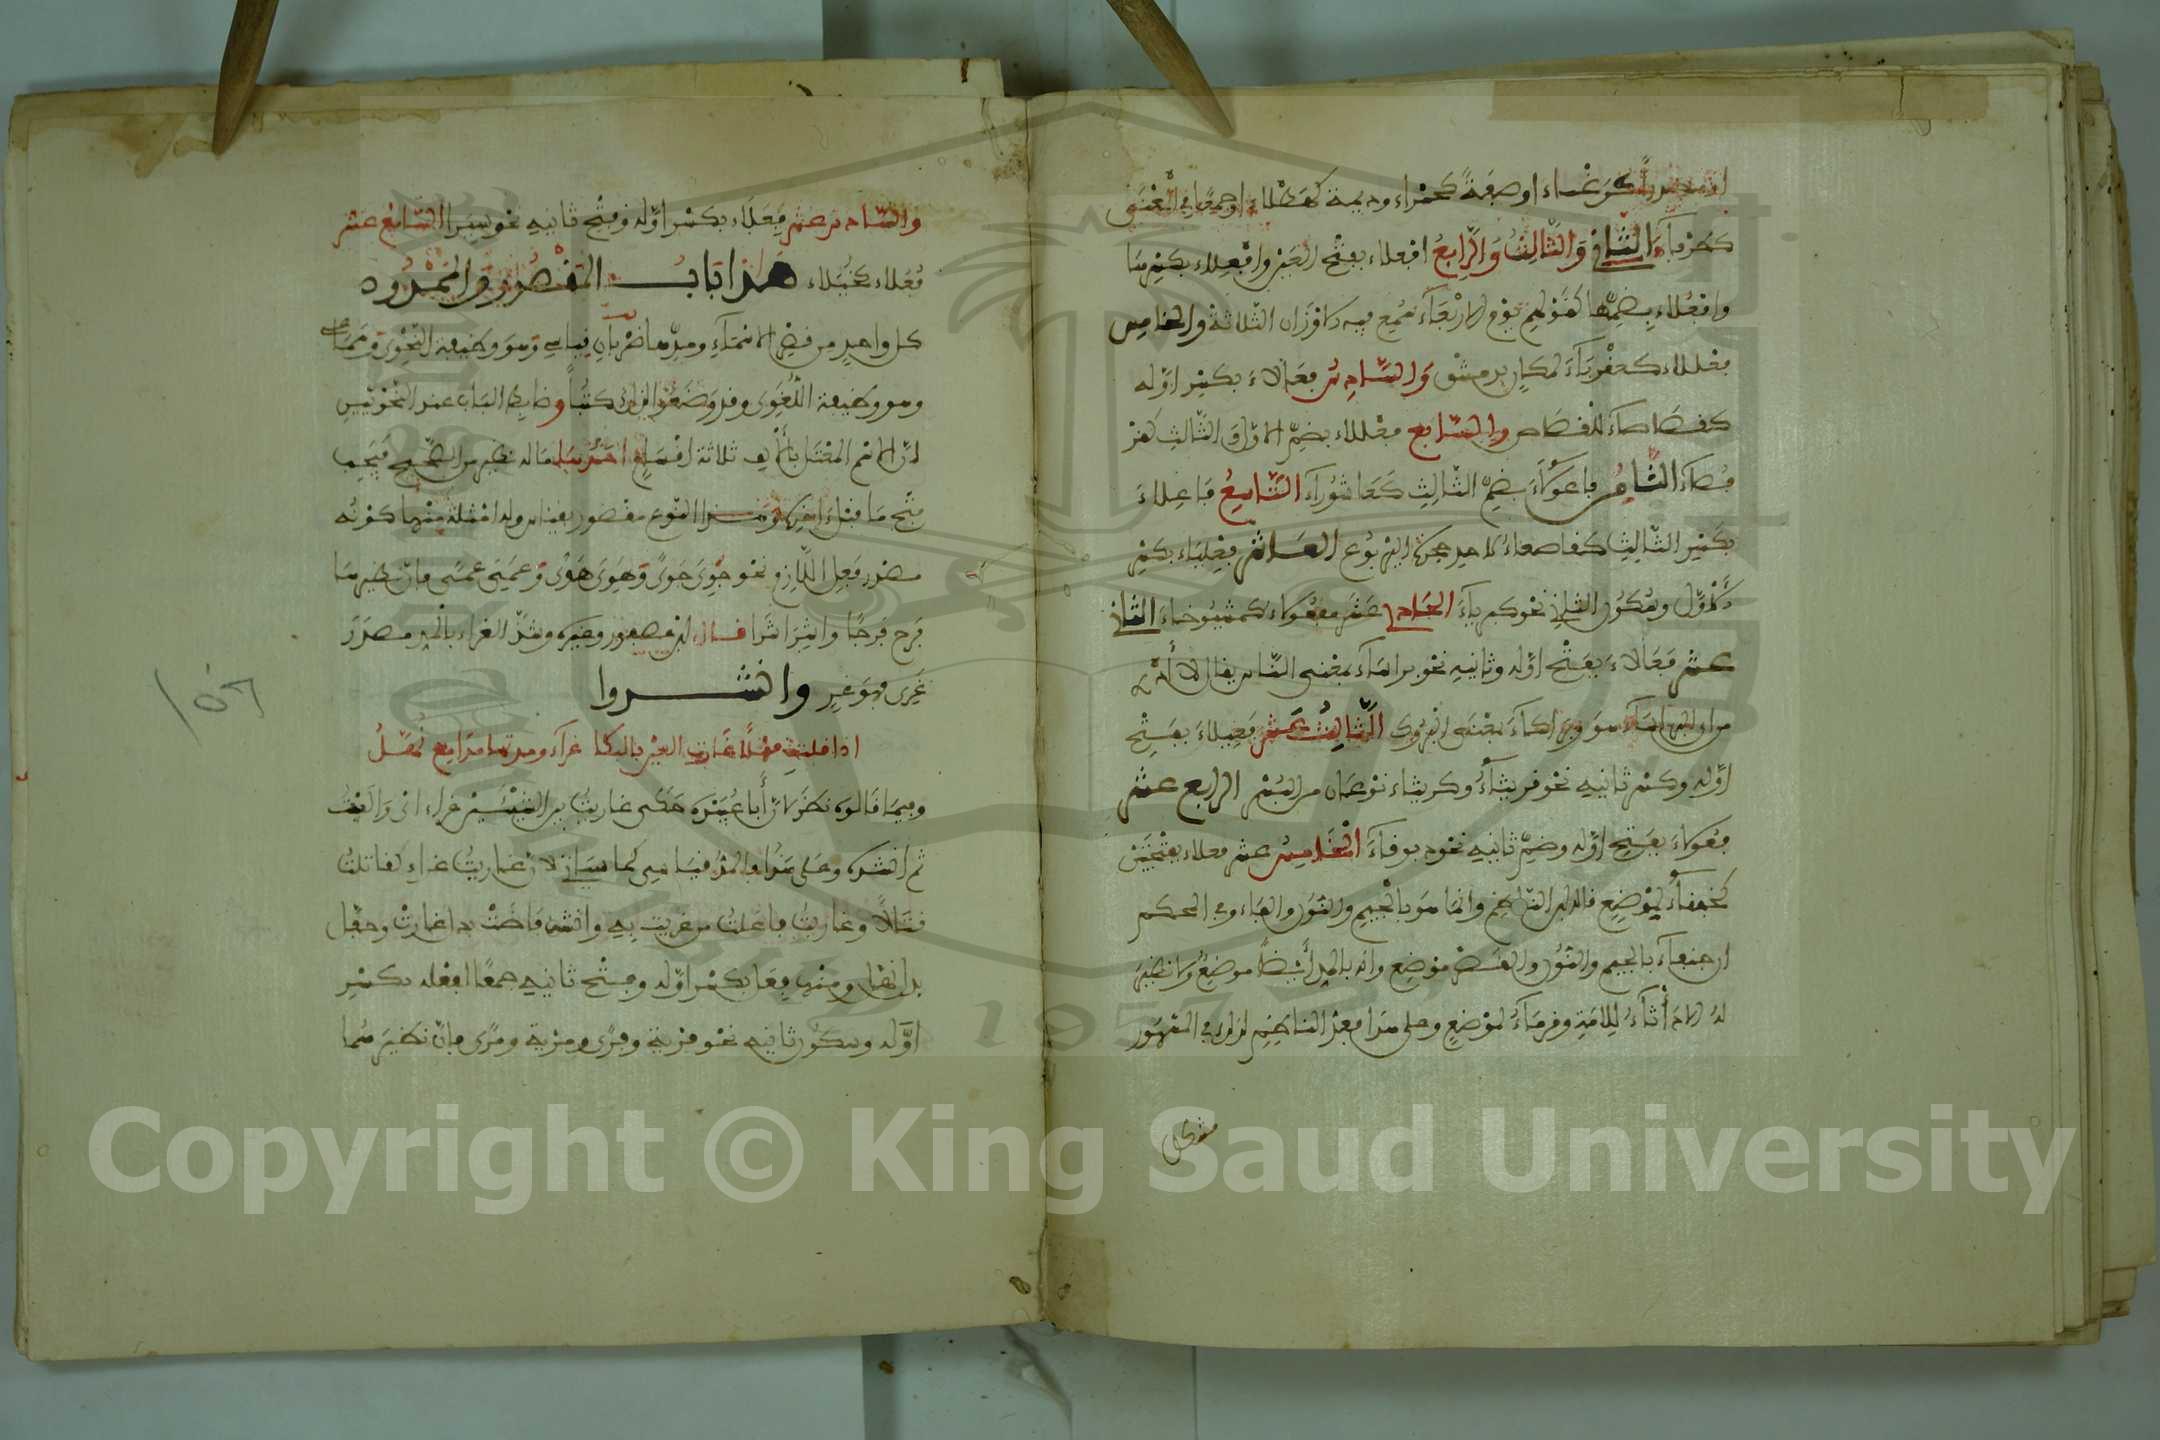 او مصدرا كرغباء او صفة كحمراء وديمة كهطلاء او جمعا في المعنى
كطرفاء الثاني والثالث والرابع افعلاء بفتح العين وافعلاء بكسرها
وافعلاء بضمها كقولهم يوم الاربعاء سمع فيه الاوزان الثلاثة والخامس
فعللاء كعقرباء لمكان بدمشق والسادس فعالاء بكسر اوله
كقصاصاء للقصاص والسابع فعللاء بضم الاول والثالث كقر
فصاء الثامن فاعولاء بضم الثالث كعاشوراء التاسع فاعلاء
بكسر الثالث كقاصعاء لاحد جحرة اليربوع العاشر فعلياء بكسر
الاول وسكون الثاني نحو كبرياء الحادي عشر مفعولاء كمشيوخاء الثاني
عشر فعالاء بفتح اوله وثانيه نحو براساء بمعنى الناس يقال لا أدري
من اي البراساء هو وبراكاء بمعنى البروك الثالث عشر فعيلاء بفتح
اوله وكسر ثانيه نحو قريثاء وكريثاء نوعان من البسر الرابع عشر
فعولاء بفتح اوله وضم ثانيه نحو دبوقاء الخامس عشر فعلاء بفتحتين
كخفقاء لموضع قاله ابن الناظم وانما هو بالجيم والنون والفاء وفي المحكم
ان جنفاء بالجيم والنون والفاء موضع وانه بالمد أيضا موضع ولا نظير
له الا دأثاء للامة وقرماء لموضع وعلى هذا فعد الناظم لذلك في المشهور
مشكل
والسادس عشر فعلاء بكسر اوله وفتح ثانيه نحو سيراء السابع عشر
فعلاء كخيلاء هذا باب المقصور والممدود
كل واحد من قصر الاسماء ومدها ضربان قياسي وهو وظيفة النحوي وسماعي
وهو وظيفة اللغوي وقد وضعوا في ذلك كتبا وضابط الباب عند النحويين
ان الاسم المعتل بالالف ثلاثة اقسام احدها ما له نظير من الصحيح يجب
فتح ما قبل اخره وهذا النوع مقصور بقياس وله امثلة منها كونه
مصدر فعل اللازم نحو جوي جوى وهوي هوى وعمي عمى فان نظيرها
فرح فرحا واشر اشرا قال ابن عصفور وغيره وشذ الغراء بالمد مصدر
غري فهو غر وانشدوا
اذا قلت مهلا غارت العين بالبكا غراء ومدتها مدامع نهل
وفيما قالوه نظر لان أبا عبيدة حكى غاريت بين الشيئين غراء اي واليت
ثم انشده وعلى هذا فالمد قياسي كما سياتي لان غاريت غراء كقاتلت
قتالا وغاريت فاعلت من غريت به وانشد فاضت بدل غارت وحفل
بدل نهل ومنها فعل بكسر اوله وفتح ثانيه جمعا لفعلة بكسر
اوله وسكون ثانيه نحو فرية وفرى ومرية ومرى فان نظيرهما
Copyright © King Saud University
1957